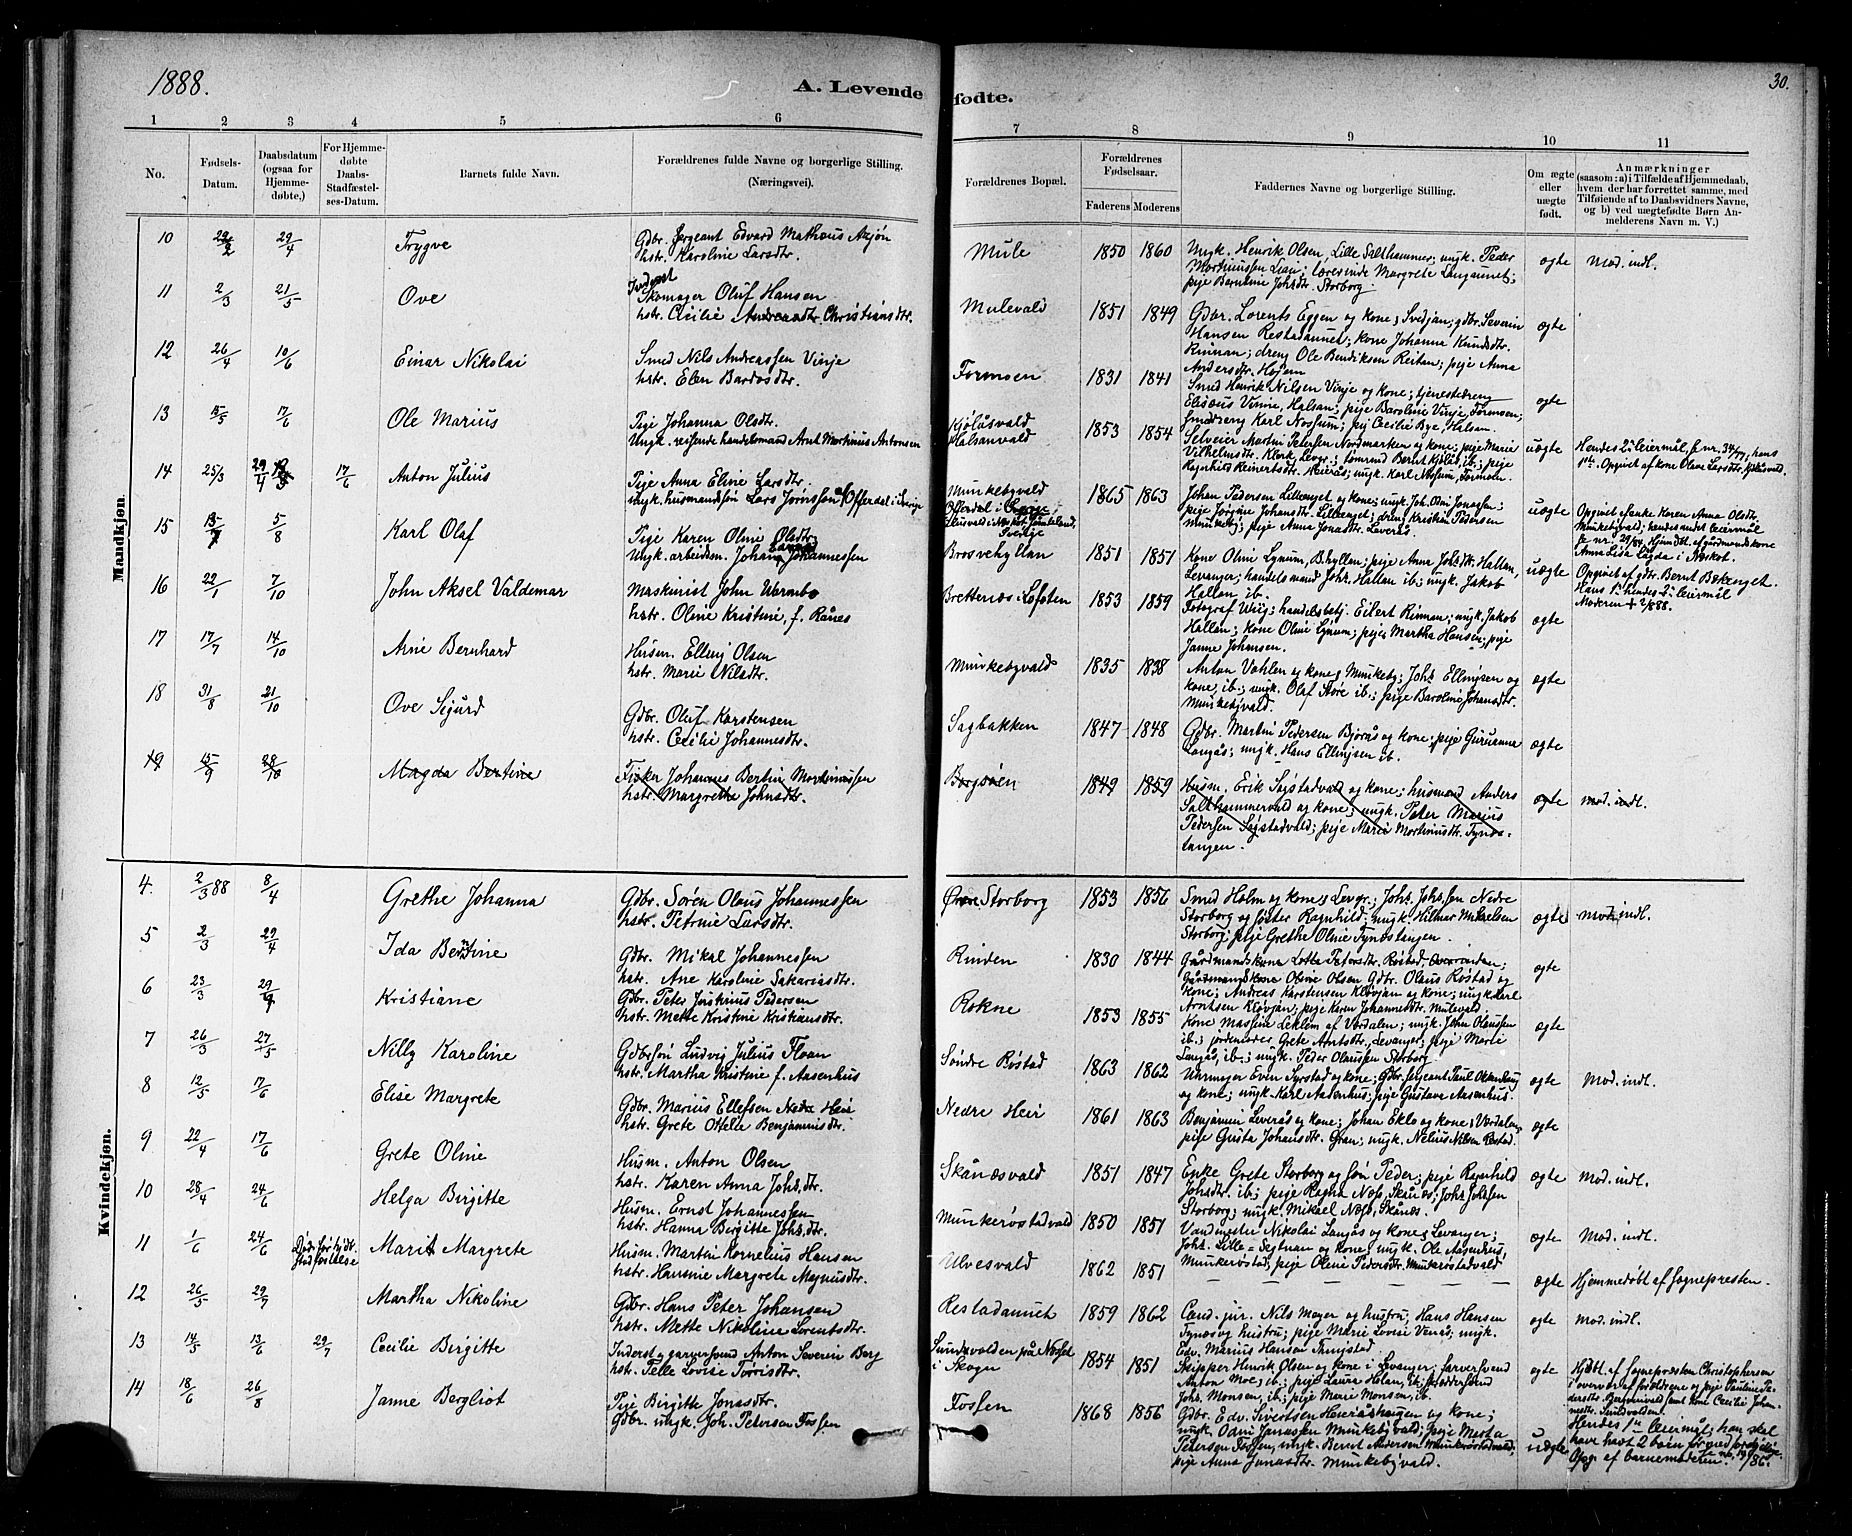 1888.
A. Levende fødte.
30.
1 2 3 4 5 6 7 8 9 10 11
No.
Fødsels-Datum.
Daabsdatum (ogsaa for Hjemmedøbte,)
For Hjemmedøbte Daabs-Stadfæstelses-Datum.
Barnets fulde Navn.
Forældrenes fulde Navne og borgerlige Stilling. (Næringsvei).
Forældrenes Bopæl.
Forældrenes Fødselsaar.
Faderens Moderens
Faddernes Navne og borgerlige Stilling.
Om ægte eller uægte født.
Anmærkninger
(saasom: a) i Tilfælde af Hjemmedaab, hvem der har forrettet samme, med Tilføiende af to Daabsvidners Navne, og b) ved uægtefødte Børn Anmelderens Navn m. V.)
Mandkjøn.
10 29/2 29/4 Trygve
Gdbr. Sergeant Edvard Mathæus
hstr. Karoline Larsdtr.
Mule 1850 1860
Ungk. Henrik Olsen, Lille Salthammer; ungk. Peder
Mortinussen Lian; lærerinde Margrete Langaunet;
pije Berntine Johsdtr. Storborg.
ægte Mod. indl.
11 2/3 21/5 Ove
Inderst
Skomager Oluf Hansen
hstr. Cecilie Andreasdtr. Christiansdtr.
Mulevald 1851 1849
Gdbr. Lorents Eggen og kone, Svedjan; gdbr. Severin
Hansen Restadaunet; kone Johanna Knudsdtr.
Rinnan; dreng Ole Bendiksen Reitan; pije Anna
Andersdtr. Hojem
ægte
12 26/4 10/6 Einar Nikolai
Smed Nils Andreassen Vinje
hstr. Elen Bardosdtr.
Formoen 1831 1841
Smed Henrik Nilsen Vinje og kone; tjenestedreng
Elisæus Vinne, Halsan; pije Baroline Vinje, Formoen;
Smeddreng Karl Nossum; pij Cecilie Bye Halsan.
ægte
13 15/5 17/6 Ole Marius
Pige Johanna Olsdtr.
Ungk. reisende handelsmand Arnt Martinus Antonsen
Kjølåsvald
Halsanvald
1853 1854
Selveier Martin Petersen Nordmarken og kone; pije Marie
Vilhelmsdtr. Klerk, Levgr.; tømrmd Bernt Kjölås, ib.; pije
Ragnhild Reinertsdtr. Heirås; ungk. Karl Nossum, Formoen.
uægte
Hendes 2det Leiermål, fr nr. 34/77, hans
1ste. Opgivet af kone Olava Larsdtr. Kjølåsvald.
14 25/3 29/4 17/6 Anton Julius
Pije Anna Eline Larsdtr.
ungk. husmandssøn Lars Jonsson, Offerdal i Sverige
Munkebyvald
Offerdal i Sverige
Sverige
1865 1863
Johan Pedersen Lillenget og kone; ungk. Joh. Odin Jonassen;
pije Jørgine Johansdtr. Lillenget; dreng Kristian Pedersen
Munkeby; pije Anna Jonasdtr. Leverås.
uægte
Opgivet af enke Karen Anna Olsdtr.
Munkebyvald; hendes andet leiermål
fr nr. 29/84. Hjemdbt. af gårdmandskone
Anna Lisa Lagda i Norskot.
15 13/7 5/8 Karl Olaf
Pige Karen Oline Olsdtr.
Ungk. arbeidsm. Johan Johannessen
Brosvehyllan 1851 1851
Kone Oline Lynum, B.hyllan; pije Anna Johsdtr. Hallan,
Levanger; handelsmand Johs. Hallan ib.; ungk. Jakob
Hallan ib.
uægte
Opgivet af gdbr. Bernt Bækenget.
Hans 1ste hendes 2det leiermål
Moderen + 2/888.
16 22/1 7/10 John Aksel Valdemar
Maskinist John Wormbo
hstr. Oline Kristine, f. Rånes
Brettenæs i Lofoten 1853 1859
Fotograf Wiig; handelsbetj. Eilert Rinnan; ungk. Jakob
Hallan; kone Oline Lynum; pije Martha Hansen; pije
Janne Johansen.
ægte
17 17/7 14/10 Arne Bernhard
Husm. Elling Olsen
hstr. Marie Nilsdtr.
Munkebyvald 1835 1838
Anton Vohlen og kone, Munkeby; Johs. Ellingsen og
kone, ib.; ungk. Olaf Støre ib.; pije Baroline Johansdtr.
Munkebyvald.
ægte
18 31/8 21/10 Ove Sigurd
Gdbr. Oluf Karstensen
hstr. Cecilie Johannesdtr.
Sagbakken 1847 1848
Gdbr. Martin Pedersen Bjørås og kone; pije Gurianna
Langås; ungk. Hans Ellingsen ib.
ægte
19 15/9 28/10 Magda Bertine
Fisker Johannes Bertin Mortinussen
hstr. Margrethe Johnsdtr.
Borgsøen 1849 1859
Husm. Erik Sagstadvald og kone; husmand Anders
Salthammervald og kone; ungk. Peter Marius
Pedersen Sagstadvald; pije Marie Mortinusdtr. Tynestangen.
ægte mod. indl.
Kvindekjøn.
4. 2/3 88 8/4 Grethe Johanna
Gdbr. Søren Olaus Johannessen
hstr. Petrine Larsdtr.
Øvre Storborg 1853 1856
Smed Holm og kone, Levgr.; Johs. Johsfen Nedre
Storborg og søster Ragnhild; ungk. Hilmar Mikkelsen
Storborg; pije Grethe Oline Tynestangen.
ægte mod. indl.
5 2/3 29/4 Ida Bertine
Gdbr. Mikal Johannessen
hstr. Ane Karoline Sakariasdtr.
Rinden 1830 1844
Gårdmandskone Lotte Petersdtr. Røstad, Overrinden;
Gårdmandskone Oline Olsen Gdbr. Olaus Røstad og
kone; Andreas Karstensen Kløvjan og kone; ungk. Karl
Arntsen Kløvjan; pije Karen Johannesdtr. Mulevald.
ægte
6 23/3 29/4 Kristiane
Gdbr. Peter Justinus Pedersen
hstr. Mette Kristine Kristiansdtr.
Rokne 1853 1855
Kone Massine Leklem af Værdalen; ungk. John Olaussen
ib.; jordemoder Grete Arntsdtr., Levanger; pije Marie
Langås, ib.; ungk. Peder Olaussen Storborg.
ægte
7 26/3 27/5 Nilly Karoline
Gdbr.søn Ludvig Julius Floan
hstr. Martha Kristine f. Aasenhus
Søndre Røstad 1863 1862
Uhrmager Even Syrstad og kone; Gdbr. sergeant Paul Okkenhaug
og kone; ungk. Karl Aasenhus; pije Gustava Aasenhus.
ægte Mod. indl.
8 12/5 17/6 Elise Margrete
Gdbr. Marius Ellefsen Nedre Heir
hstr. Grete Otelie Benjaminsdtr.
Nedre Heir 1861 1863
Benjamin Leverås og kone; Johan Eklo og kone, Værdalen;
pije Gusta Johansdtr. Gran; ungk. Nelius Nilsen Røstad.
ægte
9 22/4 17/6 Grete Oline
Husm. Anton Olsen
hstr. Karen Anna Johs.dtr.
Skånesvald 1851 1847
Enke Grete Storborg og søn Peder; pije Ragnhild
Johsdtr. ib.; pije Ragna Næss, Skånes; Johs. Johsfen
Storborg; ungk. Mikael Næss, Skånes.
ægte Mod. indl.
10 28/4 24/6 Helga Birgitte
Husm. Ernst Johannessen
hstr. Hanna Birgitte Johs.dtr.
Munkerøstadvald 1850 1851
Vandmester Nikolai Langås og kone, Levanger;
Johs. Lille-Segtnan og kone; ungk. Ole Aasenhus,
Munkerøstad; pije Oline Pedersdtr. Munkerøstadvald
ægte Mod. indl.
11 1/6 24/6 Død før
stadfæstelse
Marit Margrete
Husm. Martin Kornelius Hansen
hstr. Hannie Margrete Magnusdtr.
Ulvesvald 1862 1851
— — — — —
ægte Hjemmedøbt af Sognepresten.
12 26/5 29/7 Martha Nikoline
Gdbr. Hans Peter Johansen
hstr. Mette Nikoline Lorentsdtr.
Restadaunet 1859 1862
Cand. jur. Nils Moyer og hustru; Hans Hansen
Tynes og hustru; pije Marie Lovise Venås; ungk.
Edv. Marius Hansen Tingstad
ægte mod. indl.
13 14/5 13/6 29/7 Cecilie Birgitte
Inderst og garversvend Anton Severin Berg
hstr. Pelle Lovise Torrisdtr.
Sundsvolden på Nesset
i Skogn
1854 1851
Skipper Henrik Olsen og kone i Levanger; farversvend
Anton Moe, ib.; pije Laura Holan, ib.; skræddersvend
Johs. Monsen, ib.; pije Marie Monsen, ib.
ægte
Hjdbt. af Sognepresten Christophersen
i overvær af forældrene og pije Pauline Pedersdtr. Bergsvevald samt kone Cecilie Johannesdtr. Sundvolden.
14 18/6 26/8 Janne Bergliot
Pije Birgitte Jonasdtr.
Gdbr. ungk. Joh. Petersen Fossen
Fossen 1868 1856
Gdbr. Edv. Sivertsen Heieråshaugen og kone;
ungk. Odin Jonassen Munkebyvald; pije Marta
Petersen Fossen, ungk. Bernt Andersen Munkerøstadvald;
pije Anna Jonasdtr. Munkebyvald.
uægte
Hendes 1ste leiermål; han skal
have havt 2 børn før med forskjellige.
Opg. af barnemoderen. fr no. 19/86.